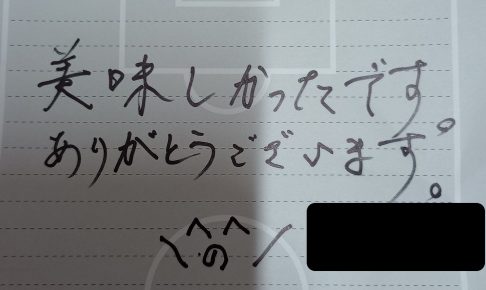 美味しかったです。
ありがとうございます。
\^の^/